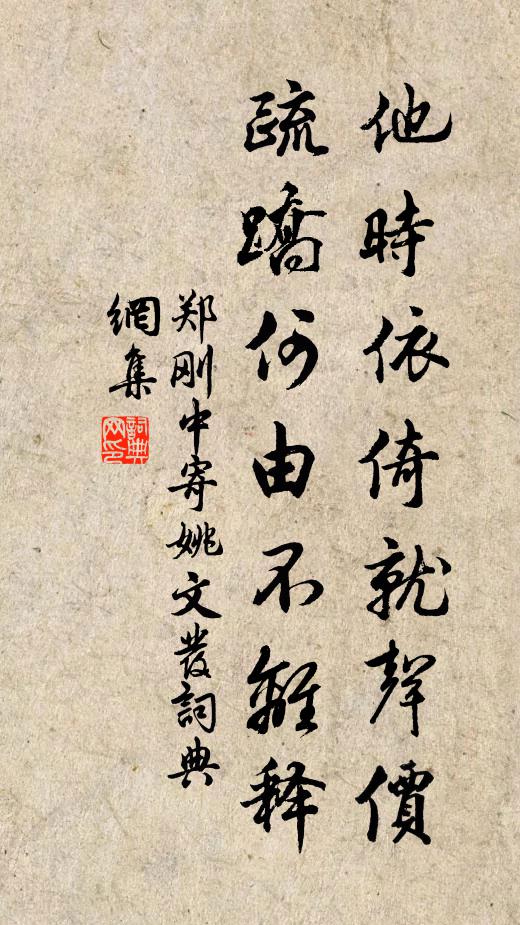 他時依倚就聲價
疏蹻何由不離释
郑刚中寄姚文發詞典
網集
詞典
网印